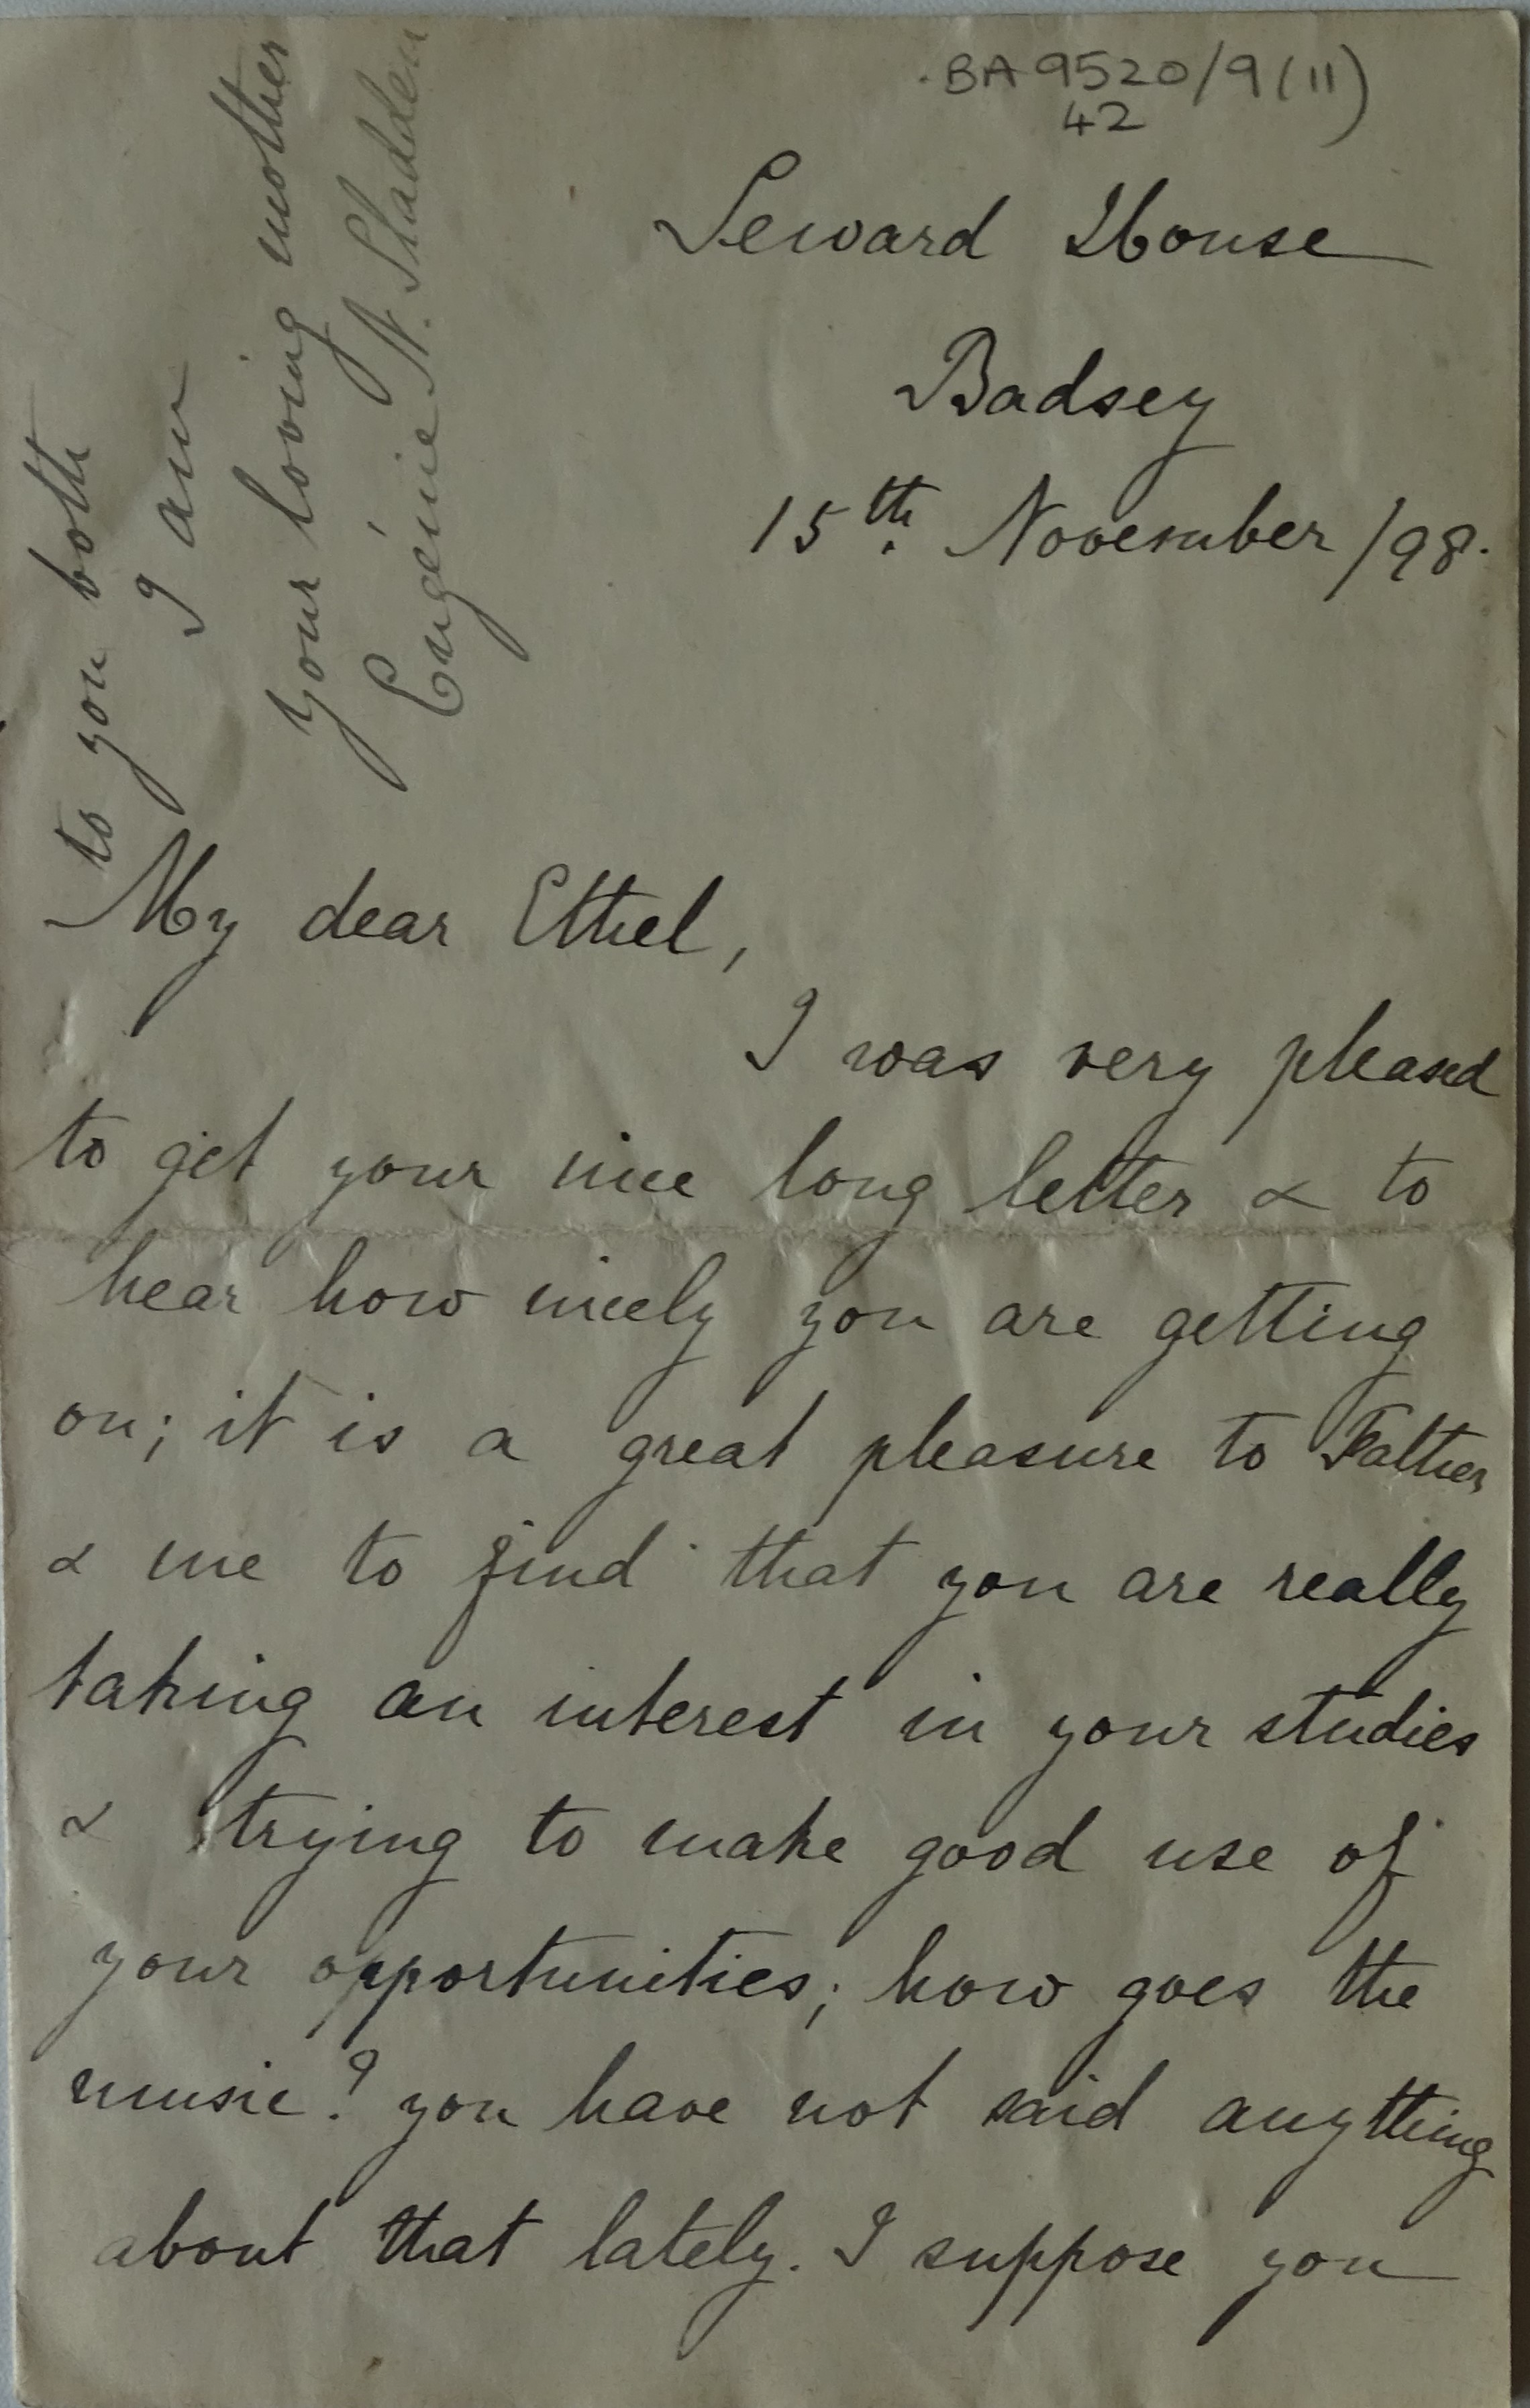 BA 9520/9(11)
42
Seward House
Badsey
15th. November /98.
My dear Ethel,
I was very pleased
to get your nice long letter & to
hear how nicely you are getting
on; it is a great pleasure to Father
& me to find that you are really
taking an interest in your studies
& trying to make good use of
your opportunities; how goes the
music? you have not said anything
about that lately. I suppose you
to you both
I am
your loving mother
Eugénie N. Sladden